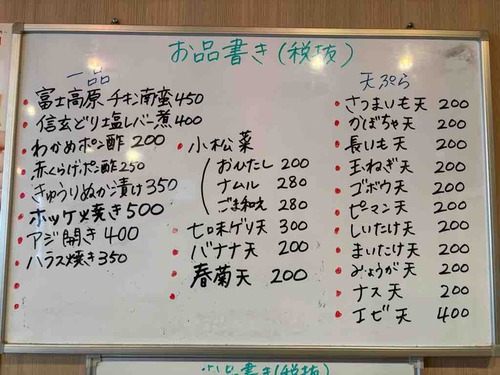 お品書き(税抜)
一品
富士高原チキン南蛮 450
信玄どり塩レバー煮 400
わかめポン酢 200
赤くらげポン酢 250
きゅうりぬか漬け 350
ホッケ焼き 500
アジ開き 400
ハラス焼き 350
小松菜
おひたし 200
ナムル 280
ごま和え 280
ゲリ天 300
バナナ天 200
春菊天 200
天ぷら
さつまいも天 200
かぼちゃ天 200
長いも天 200
玉ねぎ天 200
ゴボウ天 200
ピーマン天 200
しいたけ天 200
まいたけ天 200
みょうが天 200
ナス天 200
エビ天 400
書き(税抜)